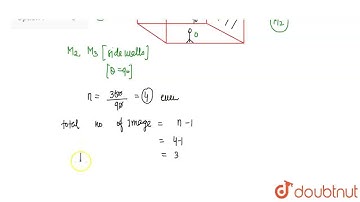 O
M2
M2, M3 [side walls]
[θ=90]
n = 360/90 = 4 even
total no of image = n-1
= 4-1
= 3
doubtnut